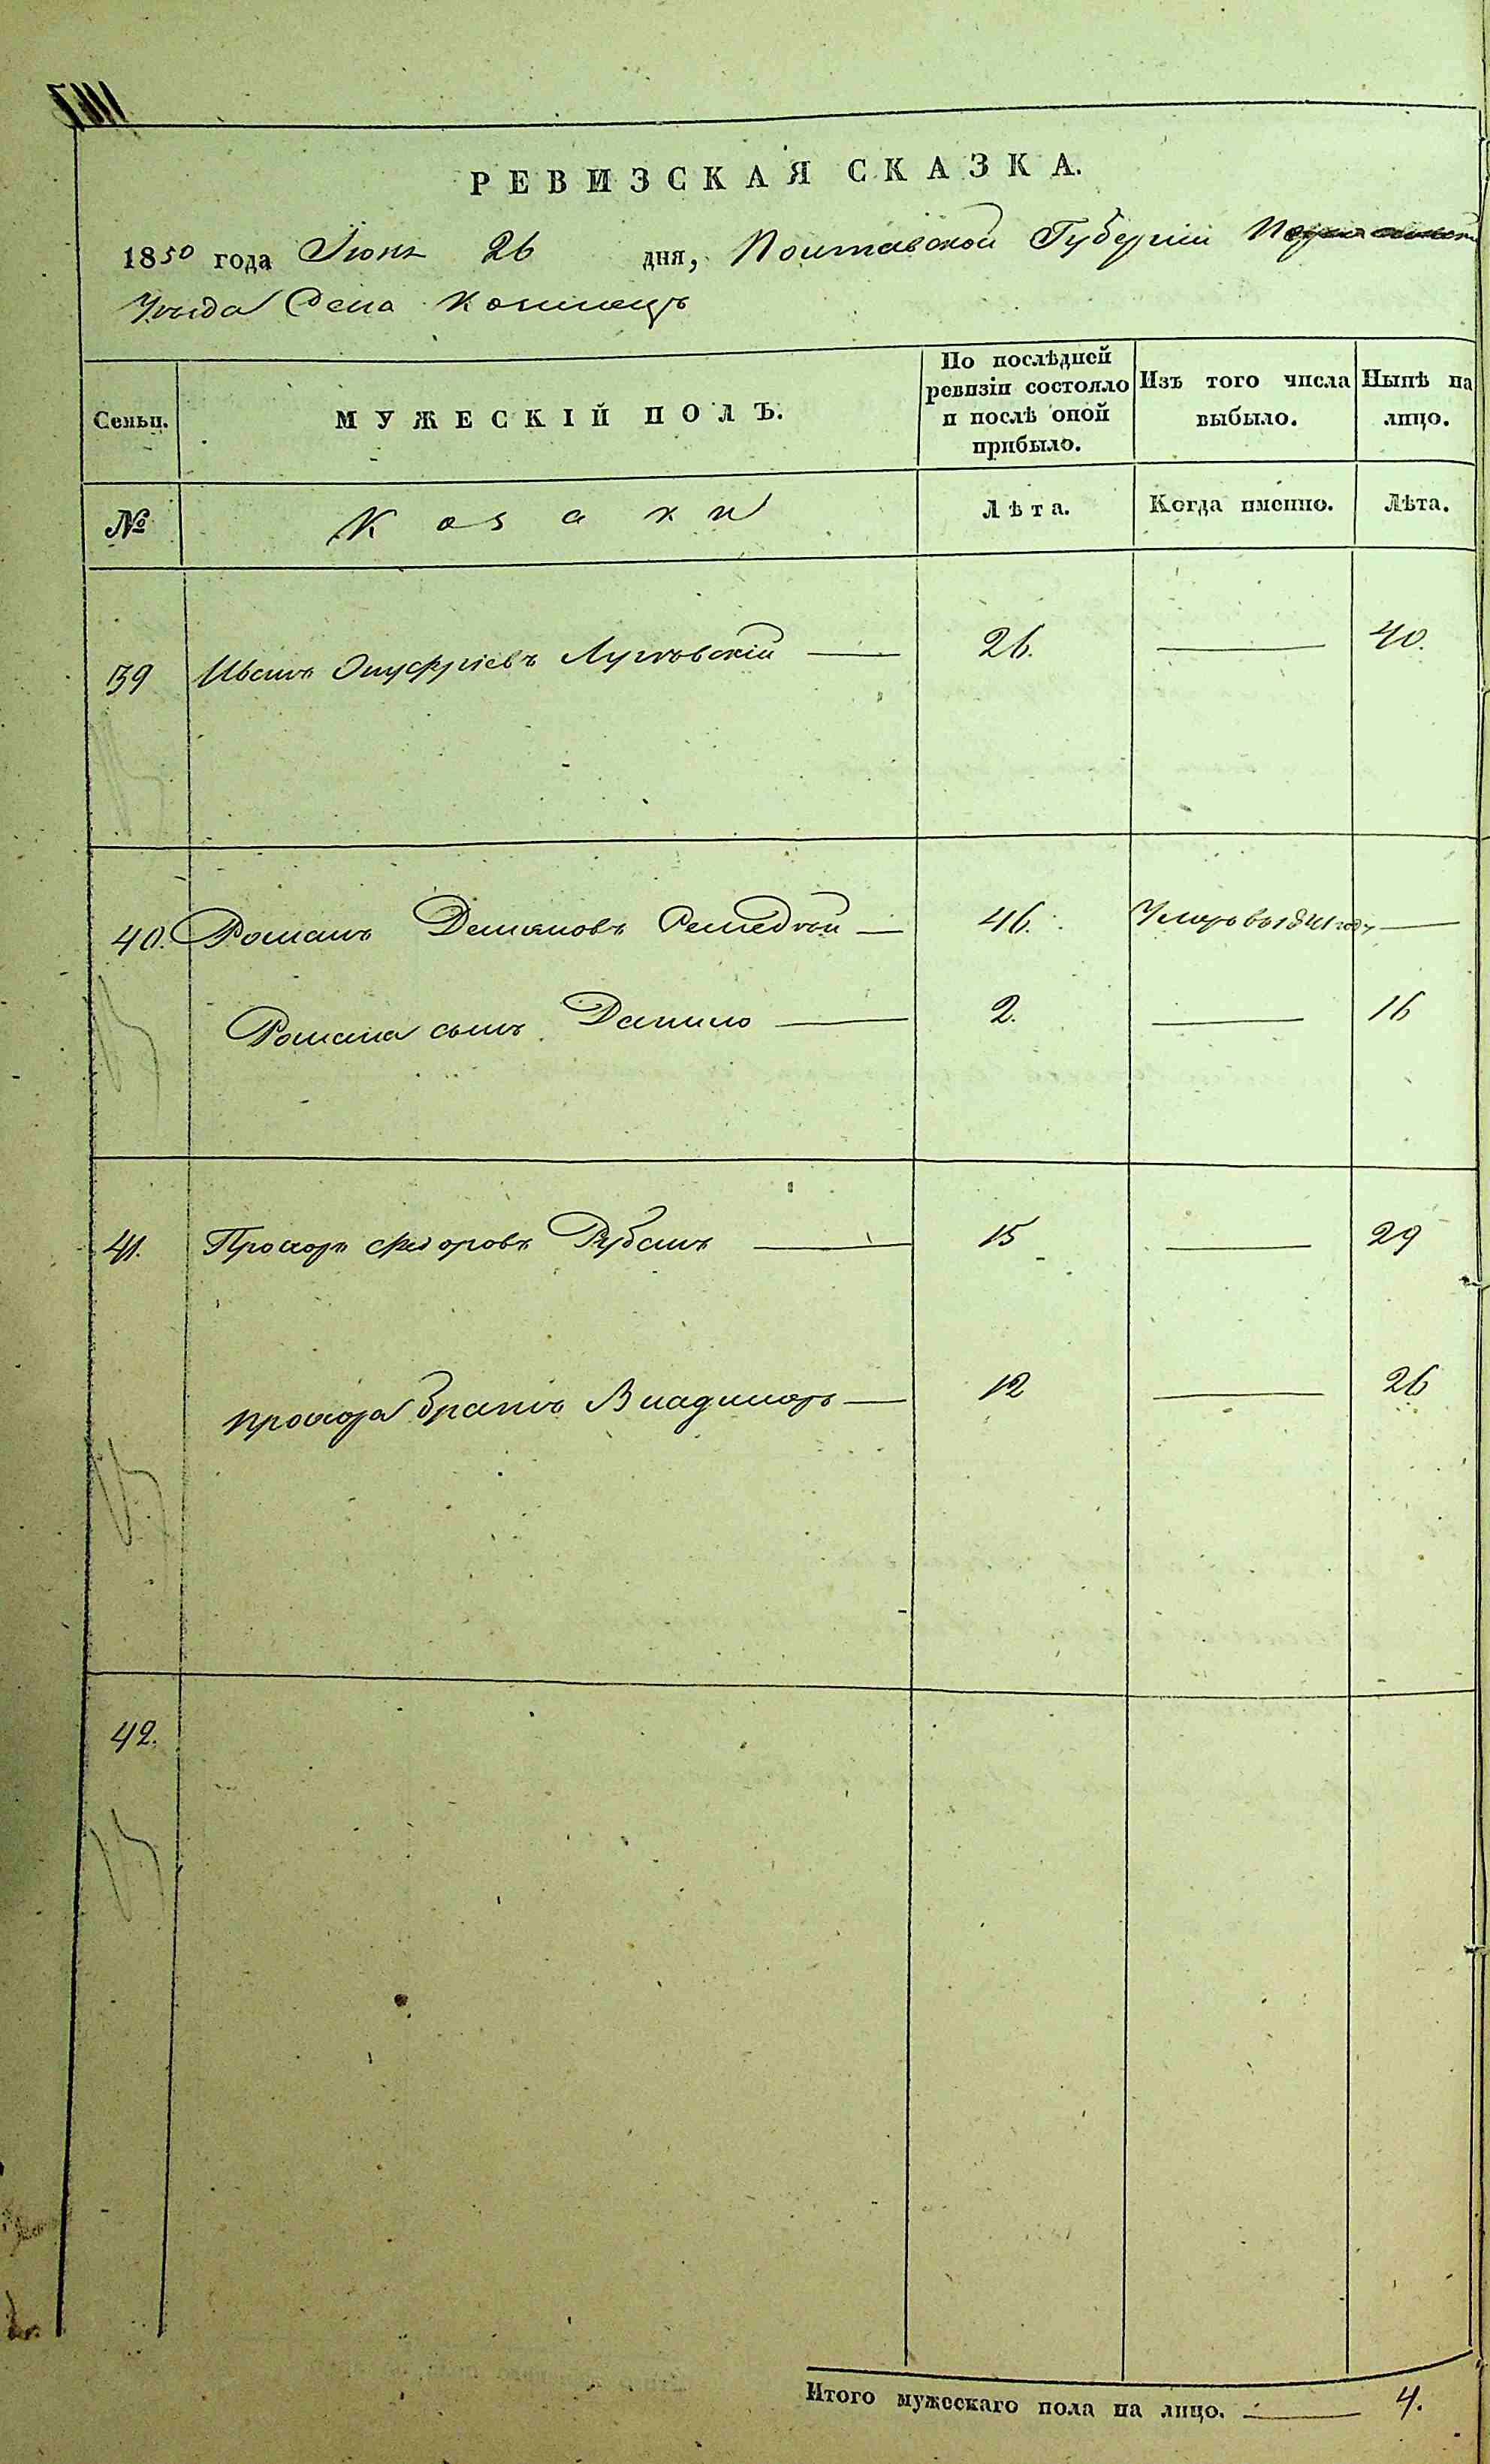 РЕВИЗСКАЯ СКАЗКА.
1850 года Іюня 26 дня, Полтавской Губерніи
Уѣзда Села
Семьи. МУЖЕСКІЙ ПОЛЪ. По послѣдней ревизіи состояло и послѣ оной прибыло. Изъ того числа выбыло. Нынѣ на лицо.
№ Козаки Лѣта. Когда именно. Лѣта.
39 Иванъ Онуфріевъ 26. 40.
40. Романъ Демяновъ 46. Умеръ въ 1841 году
Романа сынъ Данило 2. 16
41. Прохоръ Федоровъ Рубанъ 15 29
Прохора братъ Владимеръ 12 26
42.
Итого мужескаго пола на лицо. 4.